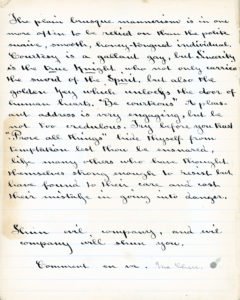 The plain brusque mannerism is in one
more often to be relied on than the polite,
suave, smooth, honey-tongued individual.
Courtesy is a gallant gay, but Sincerity
is the true Knight who not only carries
the sword of the Spirit, but also the
golden Key which unlocks the door of
human hearts. "Be courteous" A pleas-
ant address is very engaging, but be
not too credulous. Try before you trust
"Prove all things" true thyself from
temptation lest thou be ensnared,
like many others who have thought
themselves strong enough to resist but
have found to their care and cost
their mistake in going into danger.
Shun evil company, and evil
company will shun you.
Comment on ve.